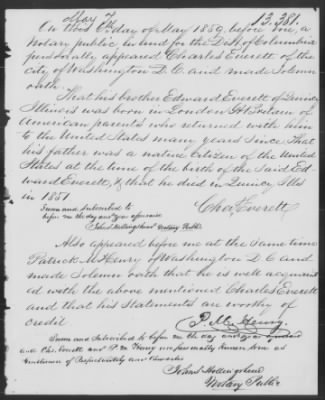 May 7
13.381.
On this 6th day of May 1859, before me, a
Notary public in and for the Dist. of Columbia
personally appeared Charles Everett of the
city of Washington D.C. and made Solemn
oath.
That his brother Edward Everett of Quincy
Illinois was born in London Gt Britain of
American parents who returned with him
to the United States many years since. That
his father was a native Citizen of the United
States at the time of the birth of the said Ed-
ward Everett, & that he died in Quincy Ills
in 1851
Sworn and Subscribed to
before me the day and year aforesaid
Chas. Everett
John S Hollingshead Notary Public
Also appeared before me at the same time
Patrick McHenry of Washington D C and
made Solemn oath that he is well acquaint
ed with the above mentioned Charles Everett
and that his statements are worthy of
credit
P. McHenry.
Sworn and Subscribed to before me the day and year aforesaid
and Chs. Everett and P. McHenry are personally known to me as
Gentlemen of Respectability and Character
John S Hollingshead
Notary Public